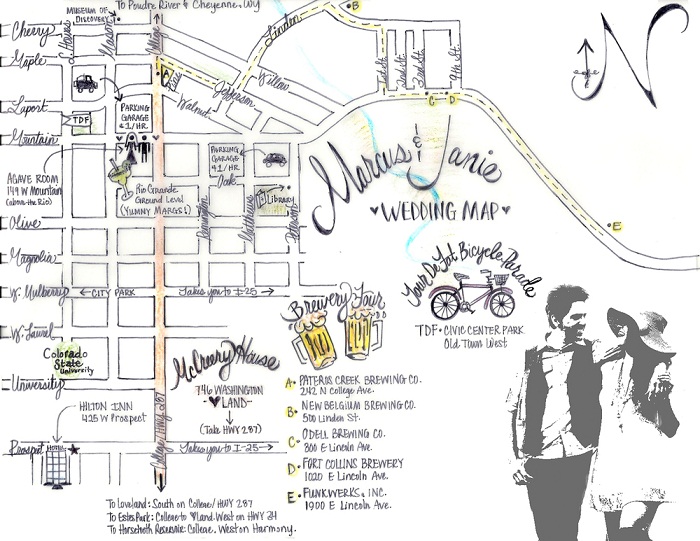 To Poudre River & Cheyenne, WY
MUSEUM OF
DISCOVERY
Cherry
Maple
Laport
Mountain
S. Howes
Mason
College
Pine
Walnut
Jefferson
Willow
Linden
1st St.
2nd St.
3rd St.
9th St.
A
B
C
D
E
N
TDF
PARKING
GARAGE
$1/HR.
AGAVE ROOM
149 W Mountain
(above the Rio)
Rio Grande
Ground Level
(YUMMY MARGS!)
PARKING
GARAGE
$1/HR.
Oak
Library
Olive
Remington
Matthews
Peterson
Magnolia
W. Mulberry
← CITY PARK
Takes you to I-25 →
W. Laurel
Colorado
State
University
University
HILTON INN
425 W Prospect
Prospect
HOTEL
Takes you to I-25 →
College/HWY 287
Marcus & Janie
♥WEDDING MAP♥
Tour De Fat Bicycle Parade
TDF • CIVIC CENTER PARK
Old Town West
Brewery Tour
A• PATEROS CREEK BREWING CO.
242 N College Ave.
B• NEW BELGIUM BREWING CO.
500 Linden St.
C• ODELL BREWING CO.
800 E Lincoln Ave.
D• FORT COLLINS BREWERY
1020 E Lincoln Ave.
E• FUNKWERKS, INC.
1900 E Lincoln Ave.
McCreery House
746 WASHINGTON
♥LAND
(Take HWY 287)
To Loveland: South on College/HWY 287
To Estes Park: College to ♥land. West on HWY 34
To Horsetooth Reservoir: College. West on Harmony.